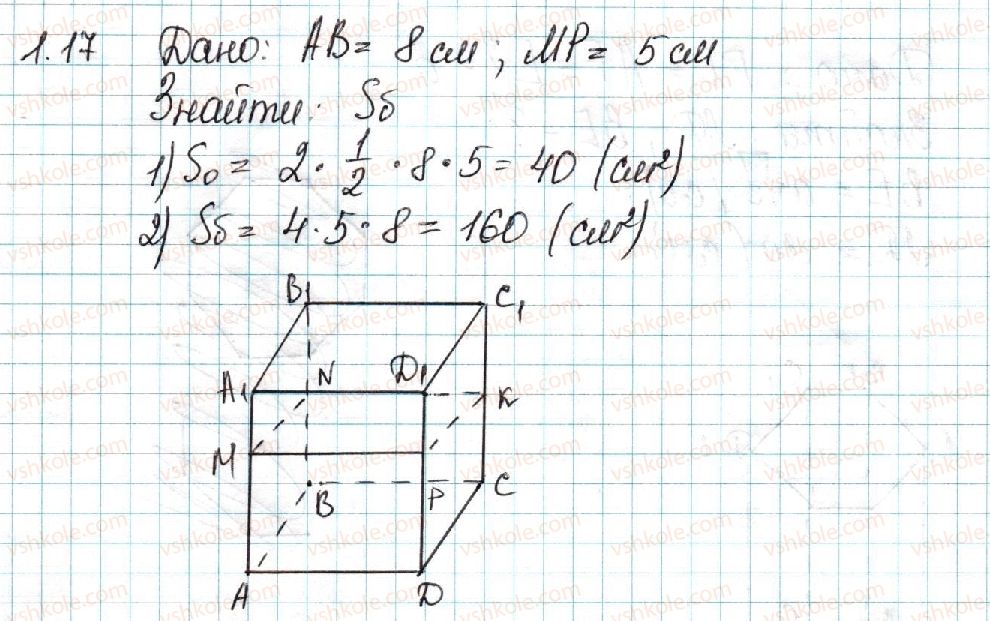 1.17 Дано: AB = 8 см; MP = 5 см
Знайти: Sб
1) S₀ = 2 · 1/2 · 8 · 5 = 40 (см²)
2) Sб = 4 · 5 · 8 = 160 (см²)
B₁ C₁
A₁ N D₁ K
M
B P C
A D
vshkole.com